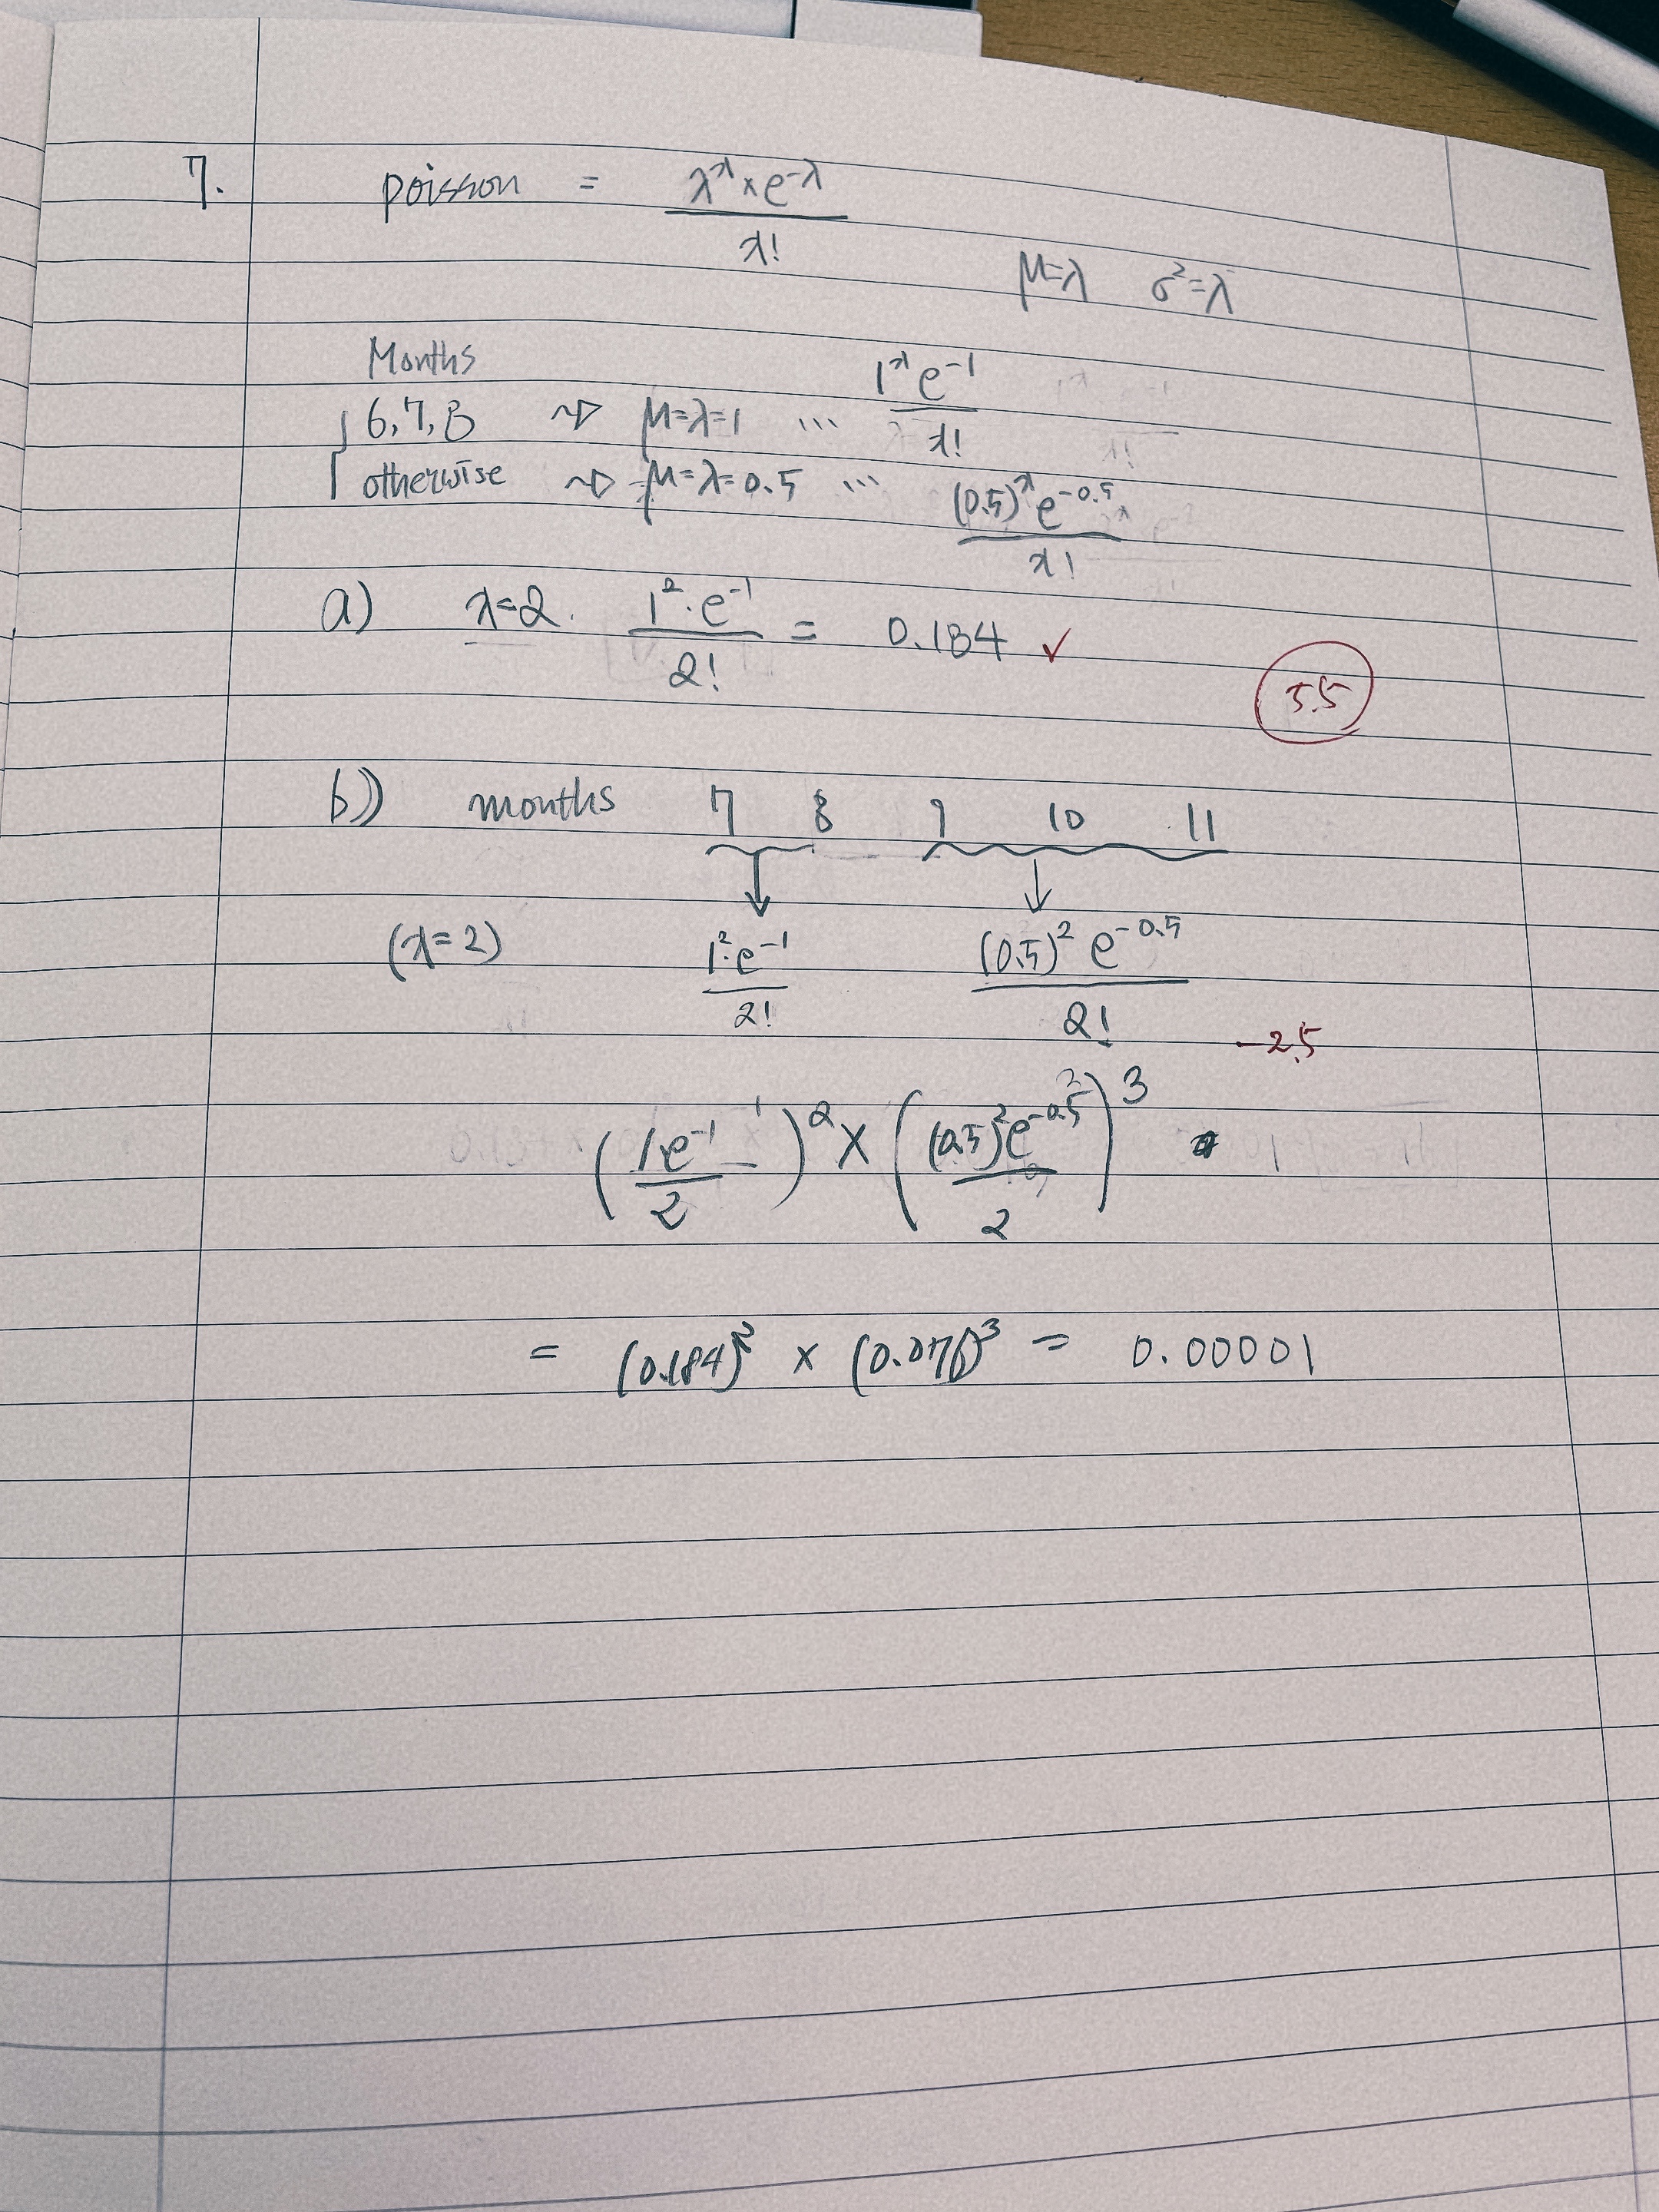 7. poisson = λ^x × e^-λ / x!
μ=λ σ²=λ
Months
6,7,8 μ=λ=1 ... 1^x e^-1 / x!
otherwise μ=λ=0.5 ... (0.5)^x e^-0.5 / x!
a) x=2. 1²·e^-1 / 2! = 0.184 ✓
5.5
b) months 7 8 9 10 11
(x=2) 1²·e^-1 / 2! (0.5)² e^-0.5 / 2!
-2.5
(1·e^-1 / 2)² × ((0.5)² e^-0.5 / 2)³
= (0.184)² × (0.076)³ = 0.00001